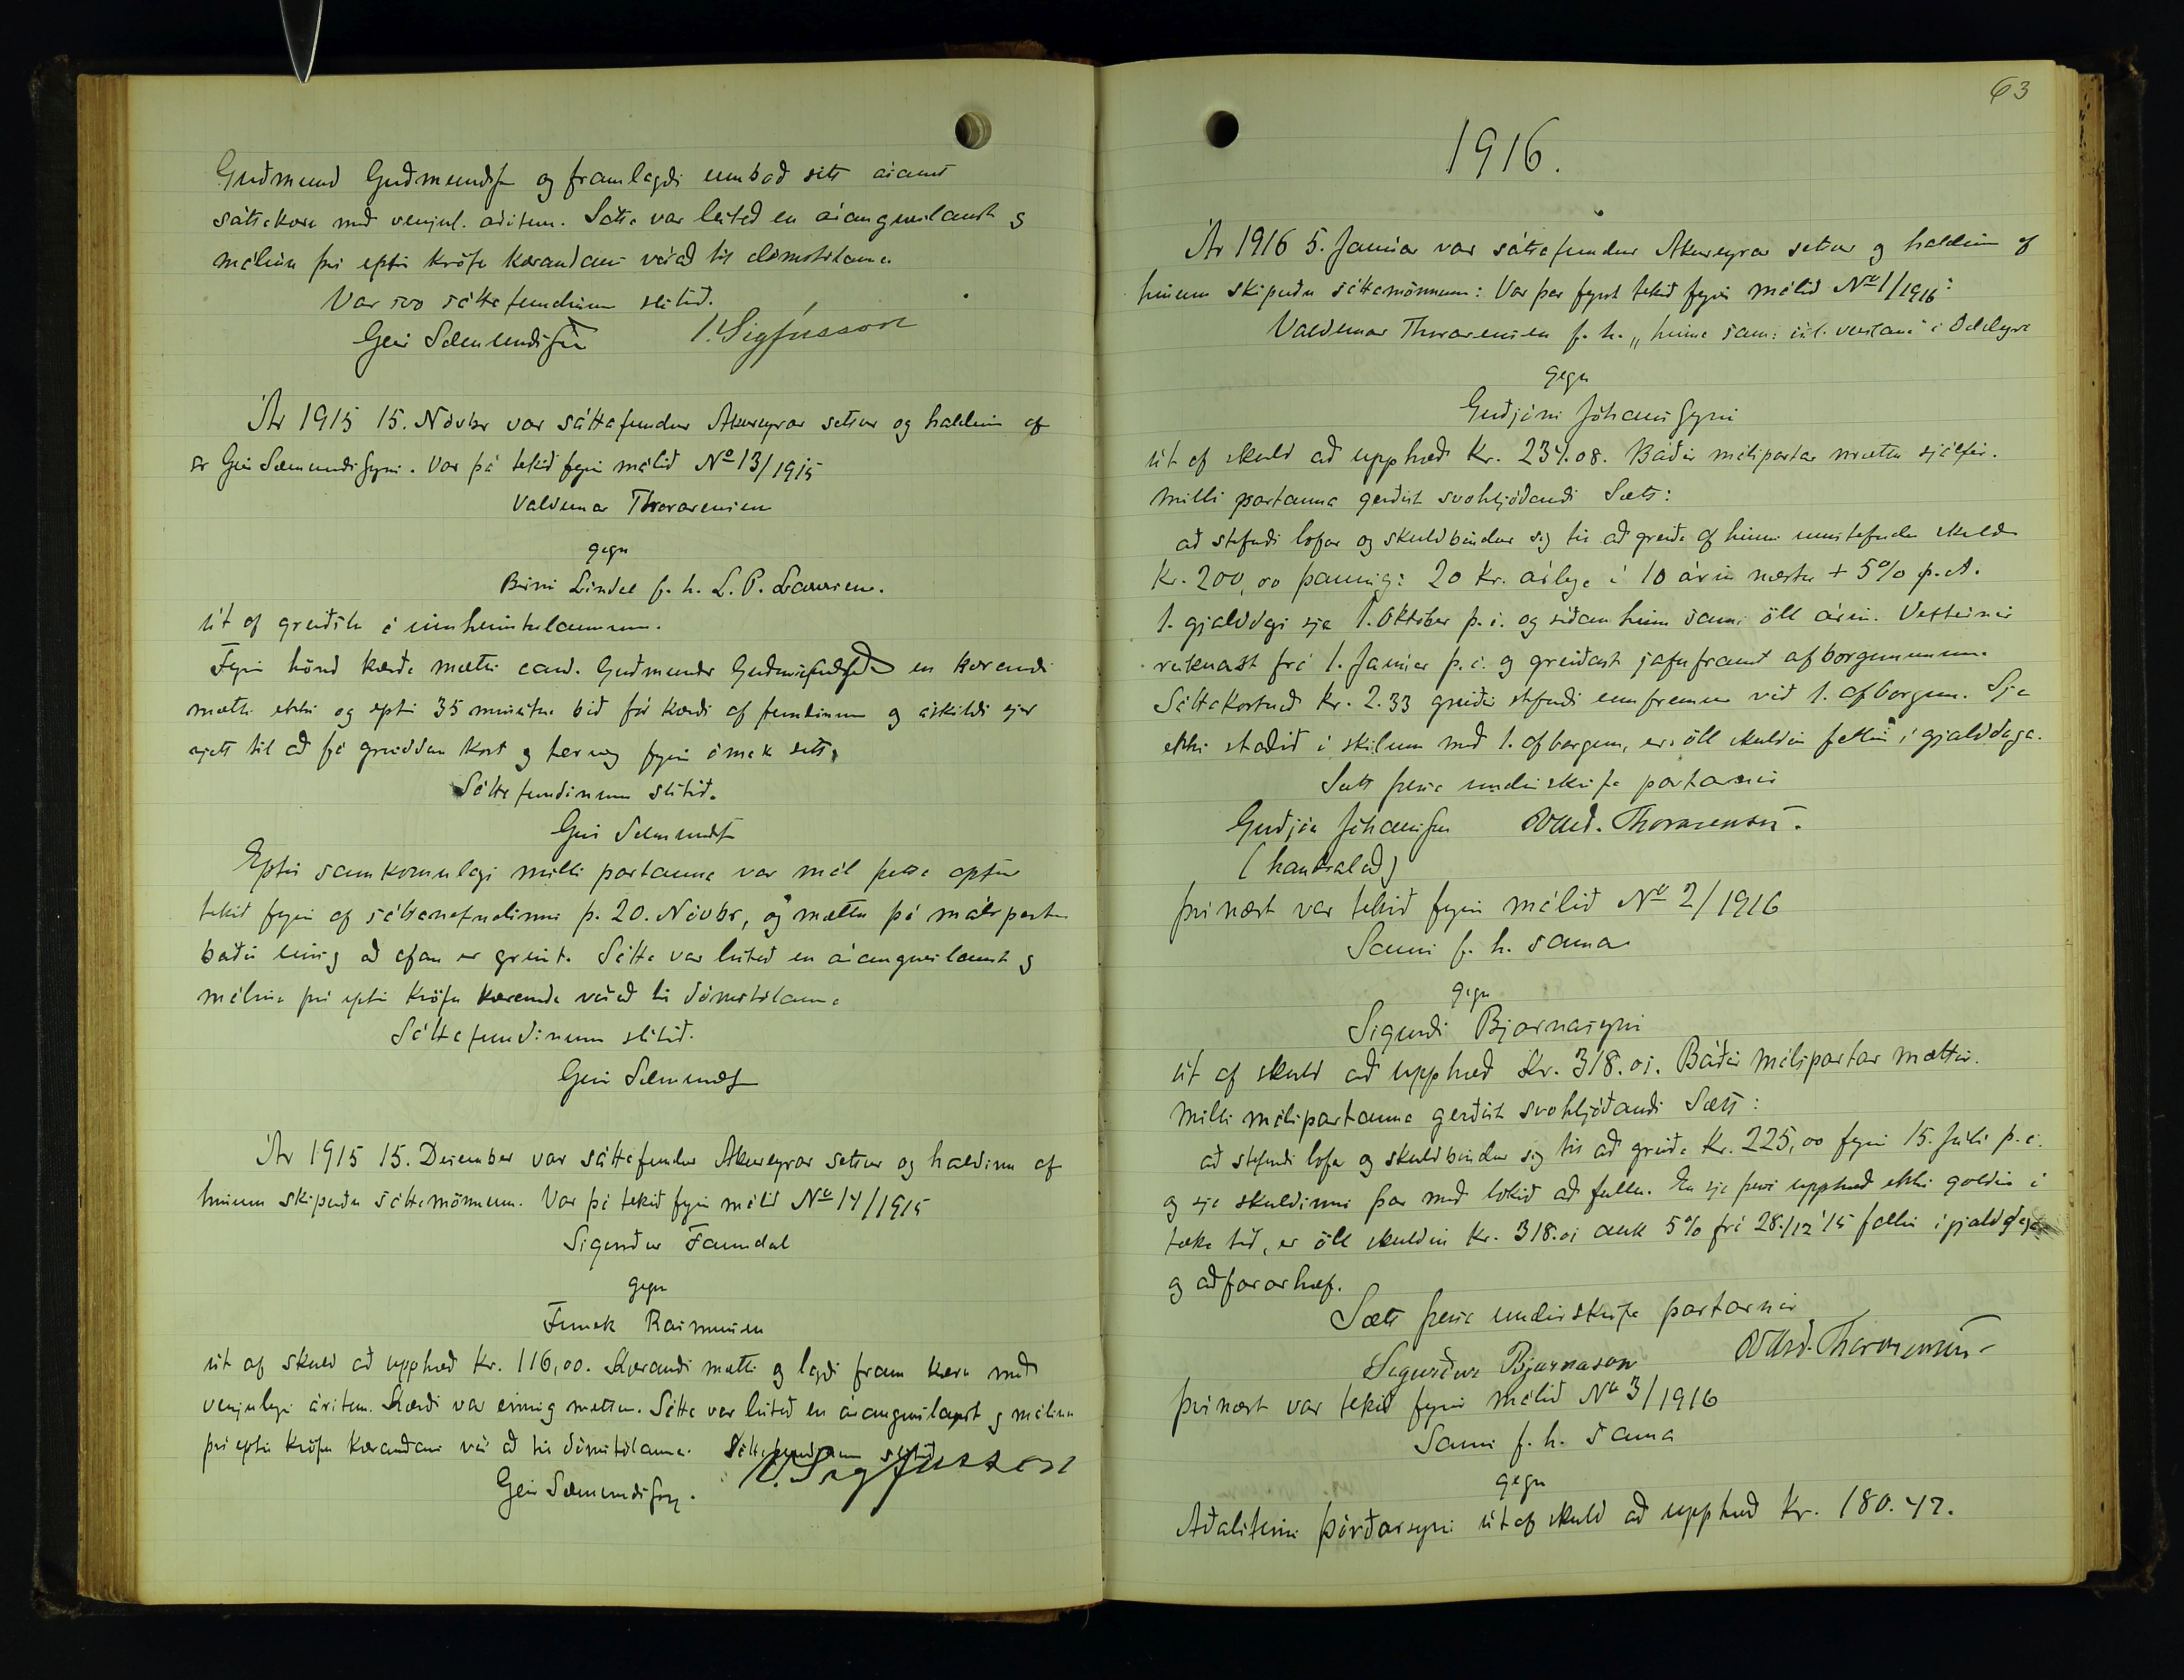 Guðmund Guðmundss og framlagði umboð sitt ásamt
sáttakæru með venjul. áritun. Sátta var leitað en árangurslaust og
málinu því eptir kröfu kærandans vísað til dómstólanna
Var svo sáttafundinum slitið.
Geir Sæmundsson V. Sigfússon
Ár 1915 15. Nóvbr var sáttafundur Akureyrar settur og haldinn af
sr Geir Sæmundssyni. Var þá tekið fyrir málið No 13/1915
Valdemar Thorarensen
gegn
Birni Líndal f. h. L. P.
út af greiðslu á innheimtulaunum.
Fyrir hönd kærða mætti cand. Guðmundr en kærandi
mætti ekki og eptir 35 mínútna bið fór kærði af fundinum og áskildi sjer
rjett til að fá greiddan kost og tæring fyrir ómak sitt.
Sáttafundinum slitið.
Geir Sæmundss
Eptir samkomulagi milli partanna var mál þetta aptur
tekið fyrir af sáttanefndinni þ. 20. Nóvbr, og mættu þá málspartar
báðir eins og að ofan er greint. Sátta var leitað en árangurslaust og
málinu því eptir kröfu kæranda vísað til dómstólanna
Sáttafundinum slitið.
Geir Sæmundss
Ár 1915 15. Desember var sáttafundur Akureyrar settur og haldinn af
hinum skipuðu sáttamönnum. Var þá tekið fyrir málið No 14/1915
Sigurður Fanndal
gegn
Funck Rasmussen
út af skuld að upphæð kr. 116,00. Kærandi mætti og lagði fram kæru með
venjulegri áritun. Kærði var einnig mættur. Sátta var leitað en árangurslaust og málinu
því eptir kröfu kærandans vísað til dómstólanna. Sáttafundinum slitið
Geir Sæmundsson. V. Sigfússon
63
1916.
Ár 1916 5. Janúar var sáttafundur Akureyrar settur og haldinn af
hinum skipuðu sáttamönnum: Var þar fyrst tekið fyrir málið No 1/1916:
Valdemar Thorarensen f. h. „hinna sam: ísl. verslana" á Oddeyri
gegn
Guðjóni Jóhannssyni
út af skuld að upphæð kr. 234.08. Báðir málspartar mættu sjálfir.
Milli partanna gerðist svohljóðandi Sætt:
að stefndi lofar og skuldbindur sig til að greiða af hinni umstefndu skuld
Kr. 200,00 þannig: 20 kr. árlega í 10 árin næstu + 5% p. A.
1. gjalddagi sje 1. Október þ. á. og síðan hinn sami öll árin. Vextirnir
reiknast frá 1. Janúar þ. á. og greiðast jafnframt afborgununum.
Sáttakostnað kr. 2.33 greiðir stefndi ennfremur við 1. afborgun. Sje
ekki staðið í skilum með 1. afborgun, er öll skuldin fallin í gjalddaga.
Sætt þessa undirskrifa partarnir
Guðjón Jóhannsson Vald. Thorarensen.
(handsalað)
Því næst var tekið fyrir málið No 2/1916
Sami f. h. sama
gegn
Sigurði Bjarnasyni
út af skuld að upphæð Kr. 318.01. Báðir málspartar mættir.
Milli málspartanna gerðist svohljóðandi Sætt:
að stefndi lofar og skuldbindur sig til að greiða kr. 225,00 fyrir 15. Júlí þ. á.
og sje skuldinni þar með lokið að fullu. En sje þessi upphæð ekki goldin í
tæka tíð, er öll skuldin kr. 318.01 auk 5% frá 28./12 '15 fallin í gjalddaga
og aðfararhæf.
Sætt þessa undirskrifa partarnir
Sigurður Bjarnason Vald. Thorarensen
Því næst var tekið fyrir málið No 3/1916
Sami f. h. sama
gegn
Aðalsteini Þórðarsyni út af skuld að upphæð kr. 180.47.